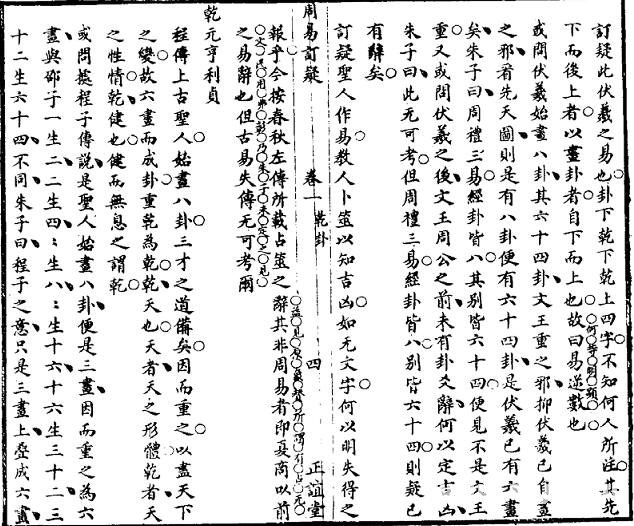 訂疑此伏羲之易也卦下乾下乾上四字不知何人所注其先
下而後上者以畫卦者自下而上也故曰易逆數也
何等明顯
或問伏羲始畫八卦其六十四卦文王重之邪抑伏羲已自畫
之邪看先天圖則是有八卦便有六十四卦是伏羲已有六畫
矣朱子曰周禮三易經卦皆八其別皆六十四便見不是文王
重又或問伏羲之後文王周公之前未有卦爻辭何以定吉凶
朱子曰此无可考但周禮三易經卦皆八別皆六十四則疑已
有辭矣
訂疑聖人作易教人卜筮以知吉凶如无文字何以明失得之
周易訂疑 卷一 乾卦 四 正誼堂
報乎今按春秋左傳所載占筮之辭其非周易者即夏商以前
之易辭也但古易失傳无可考爾
乾元亨利貞
程傳上古聖人始畫八卦三才之道備矣因而重之以盡天下
之變故六畫而成卦重乾為乾乾天也天者天之形體乾者天
之性情乾健也健而無息之謂乾
或問據程子傳說是聖人始畫八卦便是三畫因而重之為六
畫與邵子一生二二生四〻生八〻生十六十六生三十二三
十二生六十四不同朱子曰程子之意只是三畫上疊成六畫